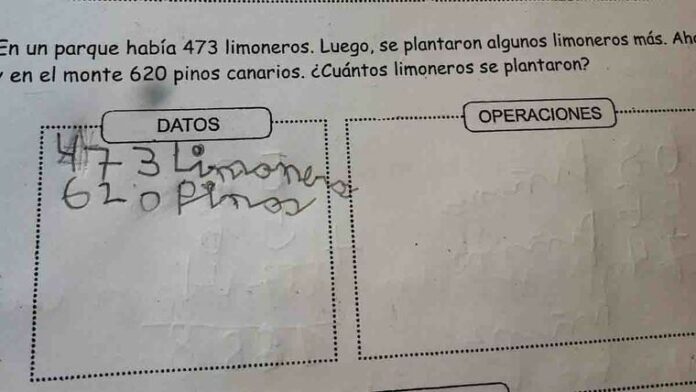 En un parque había 473 limoneros. Luego, se plantaron algunos limoneros más. Aho
y en el monte 620 pinos canarios. ¿Cuántos limoneros se plantaron?
DATOS
OPERACIONES
473 Limonero
620 Pinos